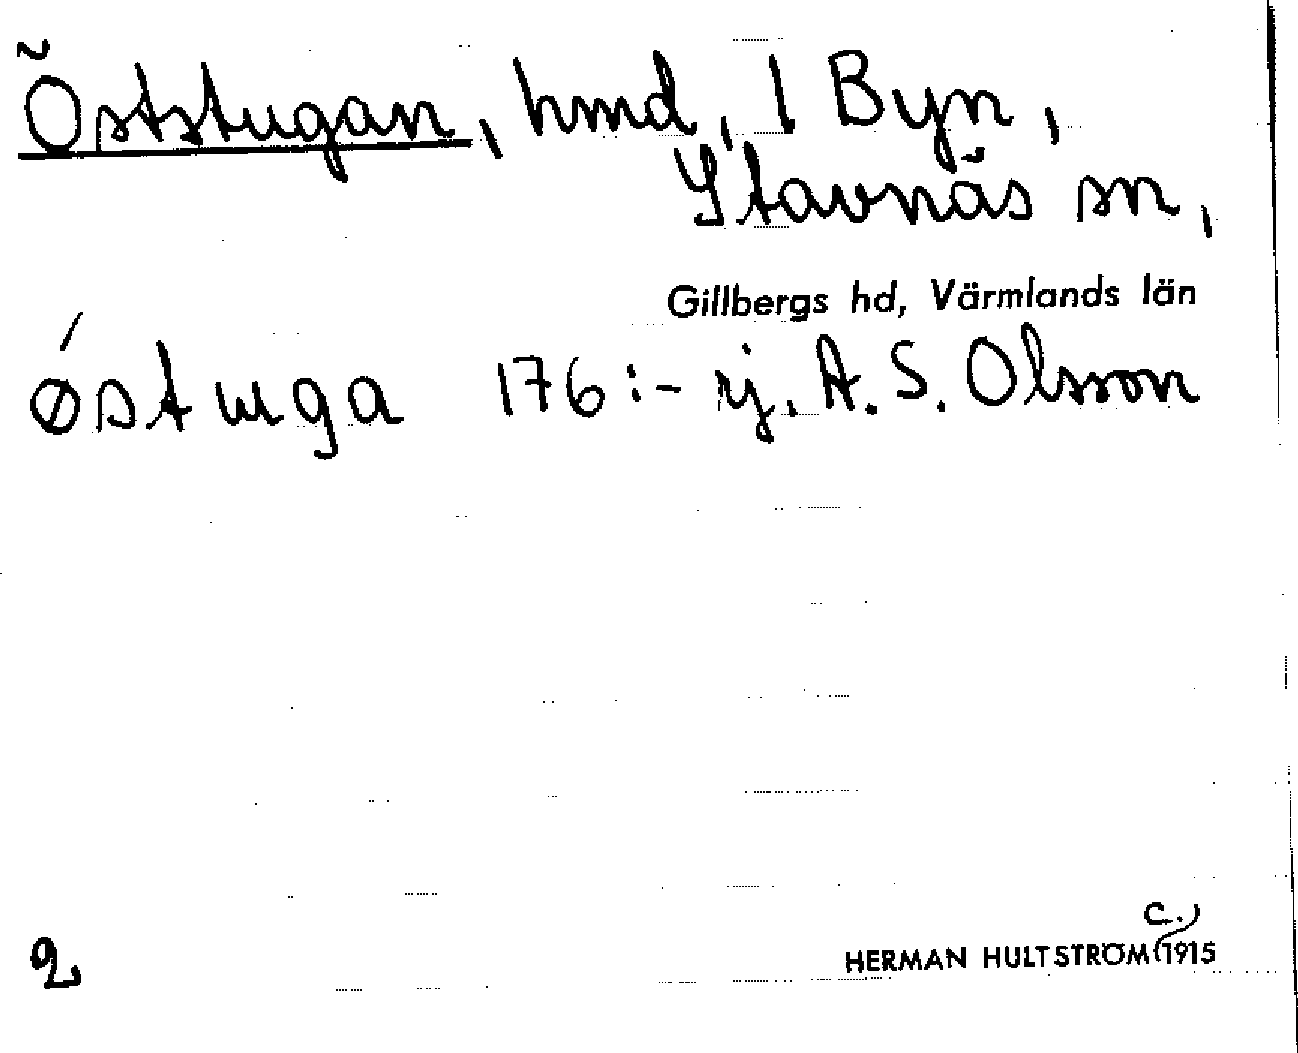 Öststugan, hmd, 1 Byn,
Stavnäs sn,
Gillbergs hd, Värmlands län
ǿstɯga 176:- rj. A. S. Olsson
2
HERMAN HULTSTRÖM c. 1915